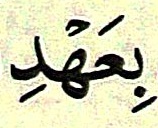 بِعَهْدِ